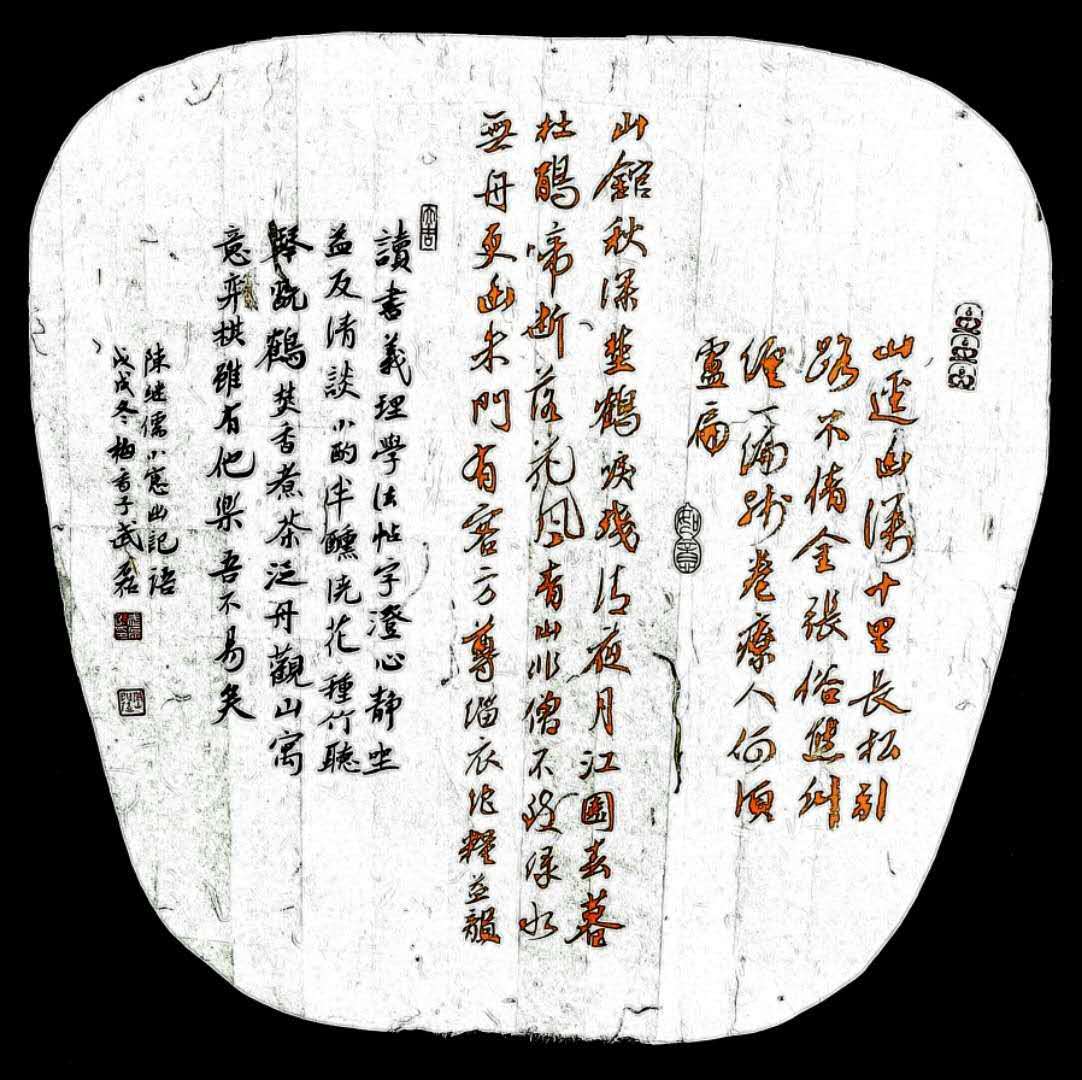 山逕幽深十里長松引
路不倩金張俗態糾
纏一編殘卷療人何須
盧扁
山館秋深埜鶴唳殘清夜月江園春暮
杜鵑啼斷落花風青山非僧不致綠水
無舟更幽朱門有客方尊緇衣絕糧益韻
大吉
讀書義理學法帖字澄心靜坐
益友清談小酌半醺澆花種竹聽
琴翫鶴焚香煮茶泛舟觀山寓
意弈棋雖有他樂吾不易矣
陳継儒小窓幽記語
戊戌冬梅香子武磊